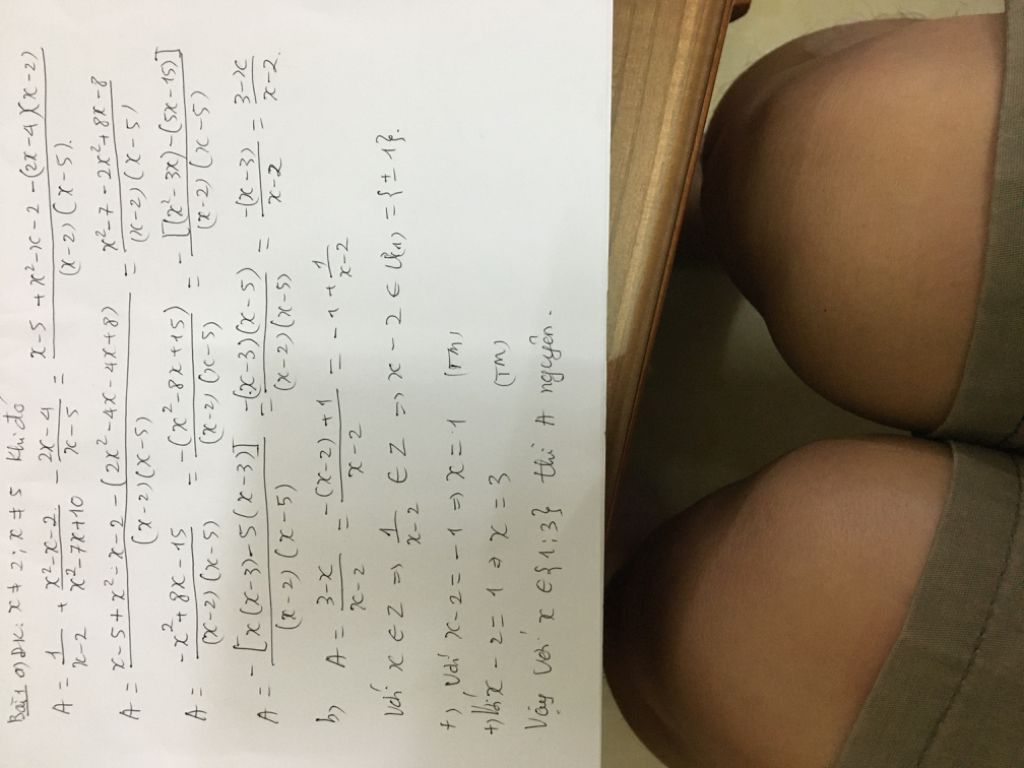 Bài 1 a) ĐK: x ≠ 2; x ≠ 5 Khi đó
A = 1/(x-2) + (x²-x-2)/(x²-7x+10) - (2x-4)/(x-5) = (x-5+x²-x-2-(2x-4)(x-2))/((x-2)(x-5)).
A = (x-5+x²-x-2-(2x²-4x-4x+8))/((x-2)(x-5)) = (x²-7-2x²+8x-8)/((x-2)(x-5))
A = (-x²+8x-15)/((x-2)(x-5)) = (-(x²-8x+15))/((x-2)(x-5)) = (-[(x²-3x)-(5x-15)])/((x-2)(x-5))
A = (-[x(x-3)-5(x-3)])/((x-2)(x-5)) = (-(x-3)(x-5))/((x-2)(x-5)) = (-(x-3))/(x-2) = (3-x)/(x-2).
b) A = (3-x)/(x-2) = (-(x-2)+1)/(x-2) = -1 + 1/(x-2)
Với x ∈ Z => 1/(x-2) ∈ Z => x-2 ∈ Ư(1) = {±1}.
+) Với x-2 = -1 => x = 1 (TM)
+) Với x-2 = 1 => x = 3 (TM)
Vậy với x ∈ {1; 3} thì A nguyên.